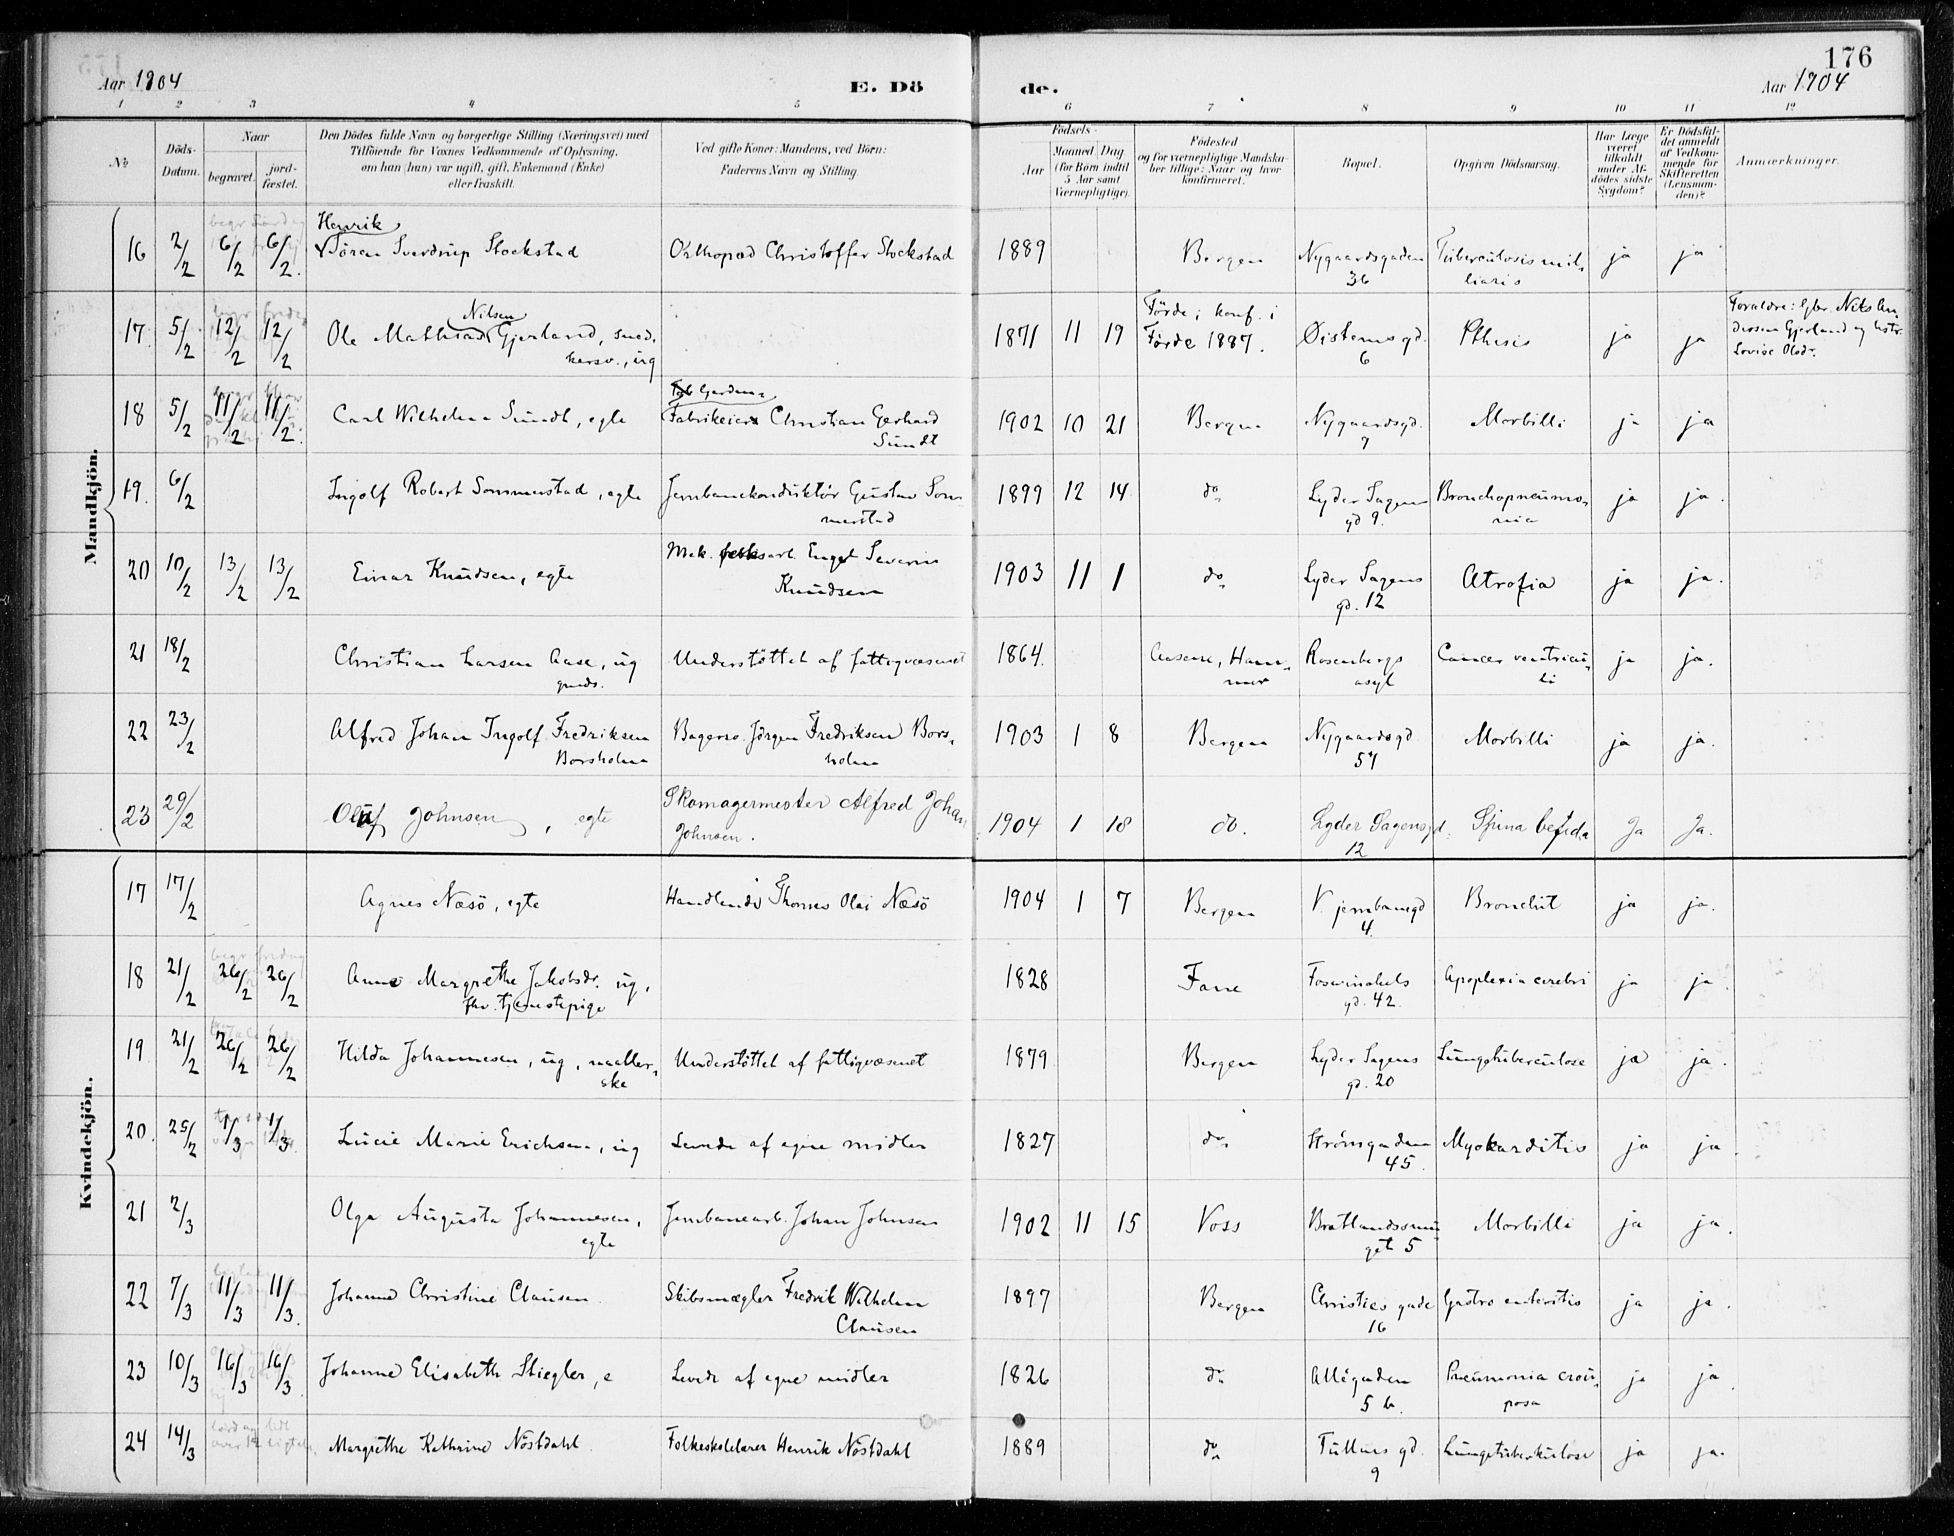 176
Aar 1904
E. Dö
de.
Aar 1904
1 2 3 4 5 6 7 8 9 10 11 12
No
Döds-Datum.
Naar
begravet.
jord-fæstet.
Den Dödes fulde Navn og borgerlige Stilling (Næringsvei) med
Tilföiende for Voxnes Vedkommende af Oplysning,
om han (hun) var ugift, gift, Enkemand (Enke)
eller fraskilt.
Ved gifte Koner: Mandens, ved Börn:
Faderens Navn og Stilling.
Födsels-
Aar
Maaned
Dag
(for Börn indtil
5 Aar samt
Værnepligtige).
Födested
og for værnepligtige Mandska-
ber tillige: Naar og hvor
konfirmeret.
Bopæl.
Opgiven Dödsaarsag.
Har Læge
været
tilkaldt
under Af-
dödes sidste
Sygdom?
Er Dödsfal-
det anmeldt
af Vedkom-
mende for
Skifteretten
(Lensman-
den)?
Anmærkninger.
Mandkjön.
16 2/2 6/2 6/2. Henrik
Sören Sverdrup Stockstad Orthopæd Christoffer Stockstad 1889 Bergen Nygaardsgaden
36 Tuberculosis mil-
liaris ja ja
17. 5/2 12/2 12/2 Ole Mathias Nilsen Gjerland, sned.
kersv., ug 1871 11 19 Förde; konf. i
Förde 1887. Øistensgd.
6 Pthisis ja ja Forældre: Gbr. Nils An-
dersen Gjerland og hstr.
Lovise Olsdr.
18 5/2 11/2 11/2. Carl Wilhelm Sundt, egte Fabrikeier Christian Gerhard
Sundt 1902 10 21 Bergen Nygaardsgd.
9 Morbilli ja ja
19. 6/2 Ingolf Robert Sommerstad, egte Jernbanekonduktör Gustav Som-
merstad 1899 12 14 do Lyder Sagens
gd 9. Bronchopneumo-
nia ja ja.
20 10/2 13/2 13/2 Einar Knudsen, egte Mek. arb. Engel Severin
Knudsen 1903 11 1 do Lyder Sagens
gd. 12 Atrofia ja ja.
21 18/2 Christian Larsen Aase, ug
gmds. Understöttet af fattigvæsenet 1864. Aasene, Ham-
mer Rosenbergs
asyl Cancer ventricu-
li ja ja.
22 23/2 Alfred Johan Ingolf Fredriksen
Borsholm Bagersv. Jörgen Fredriksen Bors-
holm 1903 1 8 Bergen Nygaardsgd
57 Morbilli ja ja.
23 29/2 Oluf Johnsen, egte Skomagermester Alfred Johan
Johnsen. 1904 1 18 do. Lyder Sagensgd.
12 Spina befida Ja Ja.
Kvindekjön.
17 17/2 Agnes Næsö, egte Handlende Thomas Olai Næsö 1904 1 7 Bergen V. jernbanegd
4. Bronchit ja ja.
18 21/2 26/2 26/2 Anne Margrethe Jakobsdr. ug,
fhv. tjenestepige 1828 Fane Foswinckels
gd. 42. Apoplexia cerebri ja ja.
19 21/2 26/2 26/2 Hilda Johannesen, ug, maaller-
ske Understöttet af fattigvæsenet 1879 Bergen Lyder Sagens
gd. 20 Lungetuberculose ja ja.
20. 25/2 1/3 1/3 Lucie Marie Erichsen, ug Levede af egne midler 1827 do. Strömgaden
45. Myokarditis ja ja
21 2/3 Olga Augusta Johannesen,
egte Jernbanearb. Johan Johnsen 1902 11 15 Voss Bratlandssmu-
get 5 Morbilli ja ja.
22 7/3 11/3 11/3. Johanne Christine Clausen Skibsmægler Fredrik Wilhelm
Clausen 1897 Bergen Christies gade
16 Gastro enteritis ja ja.
23 10/3 16/3 16/3 Johanne Elisabeth Stiegler, e Levede af egne midler 1826 do Allégaden
5 b. Pneumonia crou-
posa ja ja
24 14/3 Margrethe Kathrine Nöstdahl Folkeskolelærer Henrik Nöstdahl 1889 do Tullins gd.
9 Lungetuberkulose ja ja.